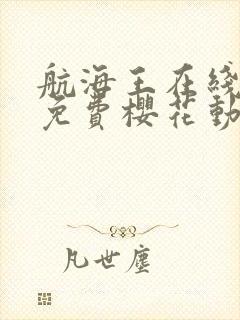 航海王在綫
免費櫻花動
凡世塵